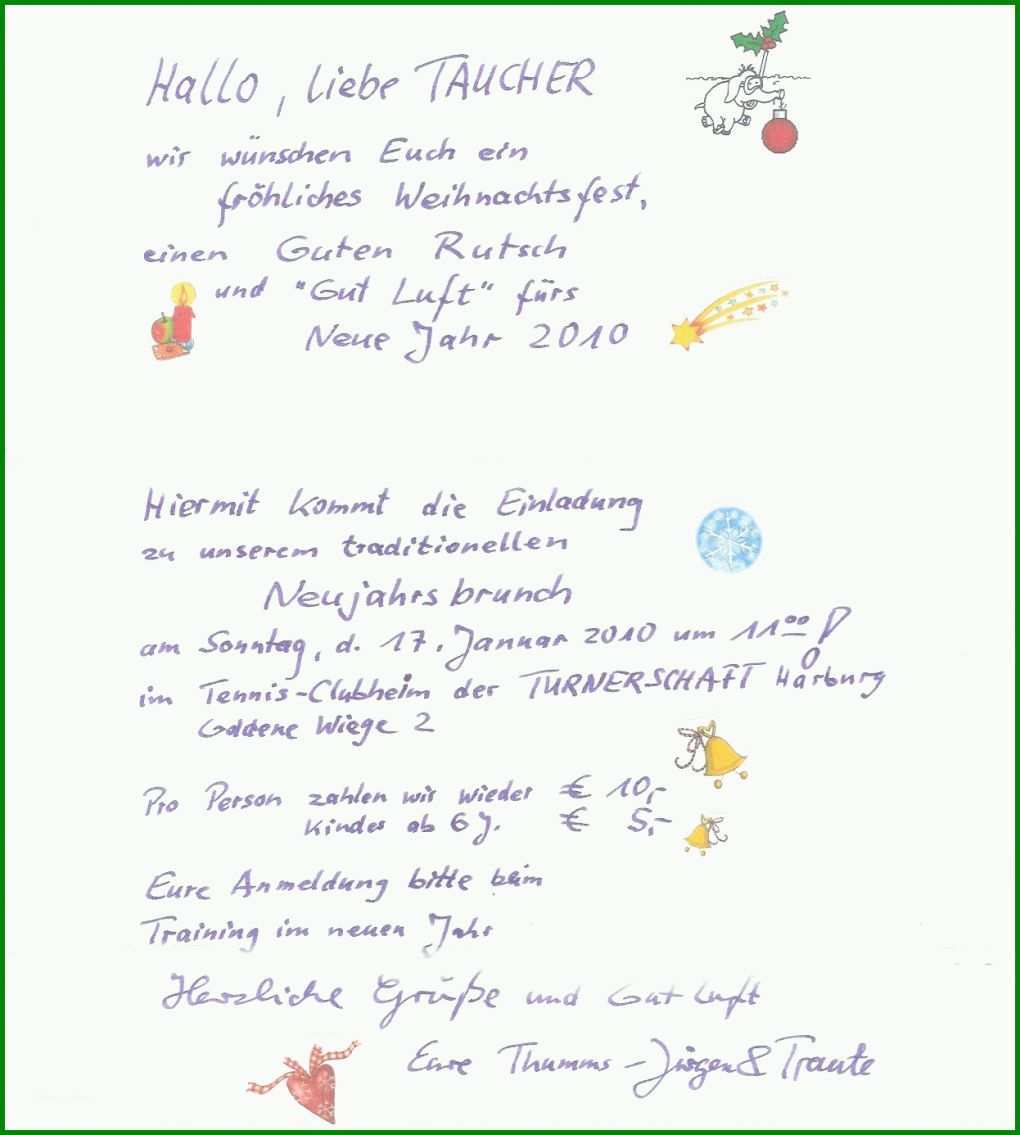 Hallo, liebe TAUCHER
wir wünschen Euch ein
fröhliches Weihnachtsfest,
einen Guten Rutsch
und "Gut Luft" fürs
Neue Jahr 2010
Hiermit kommt die Einladung
zu unserem traditionellen
Neujahrsbrunch
am Sonntag, d. 17. Januar 2010 um 11 00
im Tennis-Clubheim der TURNERSCHAFT Harburg
Goldene Wiege 2
Pro Person zahlen wir wieder € 10,-
Kinder ab 6 J. € 5,-
Eure Anmeldung bitte beim
Training im neuen Jahr
Herzliche Grüße und Gut Luft
Eure Thumms - Jürgen & Traute